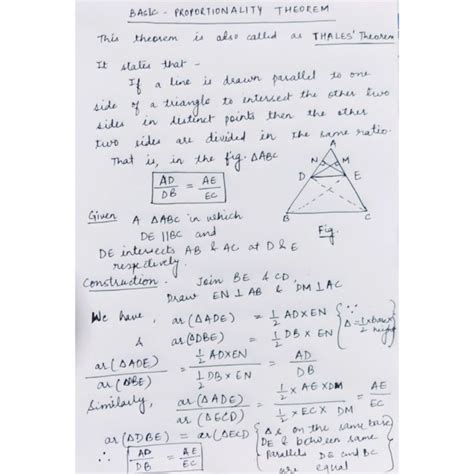 BASIC - PROPORTIONALITY THEOREM
This theorem is also called as THALES' Theorem
It states that -
If a line is drawn parallel to one
side of a triangle to intersect the other two
sides in distinct points then the other
two sides are divided in the same ratio.
That is, in the fig. ΔABC
AD/DB = AE/EC
A
N M
D E
B C
Fig.
Given A ΔABC in which
DE ||BC and
DE intersects AB & AC at D & E
respectively.
Construction - Join BE & CD,
Draw EN ⊥ AB & DM ⊥ AC
We have, ar(ΔADE) = 1/2 ADxEN
& ar(ΔDBE) = 1/2 DB x EN
{∵ Δ = 1/2 x base x height}
ar(ΔADE)/ar(ΔDBE) = 1/2 ADxEN / 1/2 DB x EN = AD/DB
Similarly, ar(ΔADE)/ar(ΔECD) = 1/2 x AExDM / 1/2 x EC x DM = AE/EC
ar(ΔDBE) = ar(ΔECD) {Δs on the same base
DE & between same
parallels DE and BC
are equal
AD/DB = AE/EC